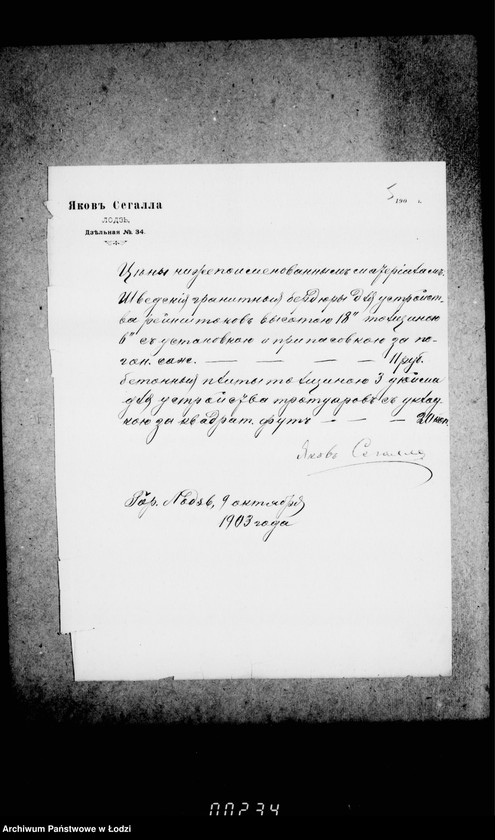 Яковъ Сегалла
ЛОДЗЬ,
Дзѣльная № 34.
190 г.
Цѣны нижепоименованнымъ матеріаламъ.
Шведскія гранитныя бендюры для устройст-
ва рейнштоковъ высотою 18" толщиною
6" съ установкою и припасовкою за по-
гон. саж. — — — — — 11 руб.
бетонныя плиты толщиною 3 дюйма
для устройства тротуаровъ съ уклад-
кою за квадрат. футъ — — — 20 коп.
Яковъ Сегалла
Гор. Лодзь, 9 октября
1903 года
000234
Archiwum Państwowe w Łodzi